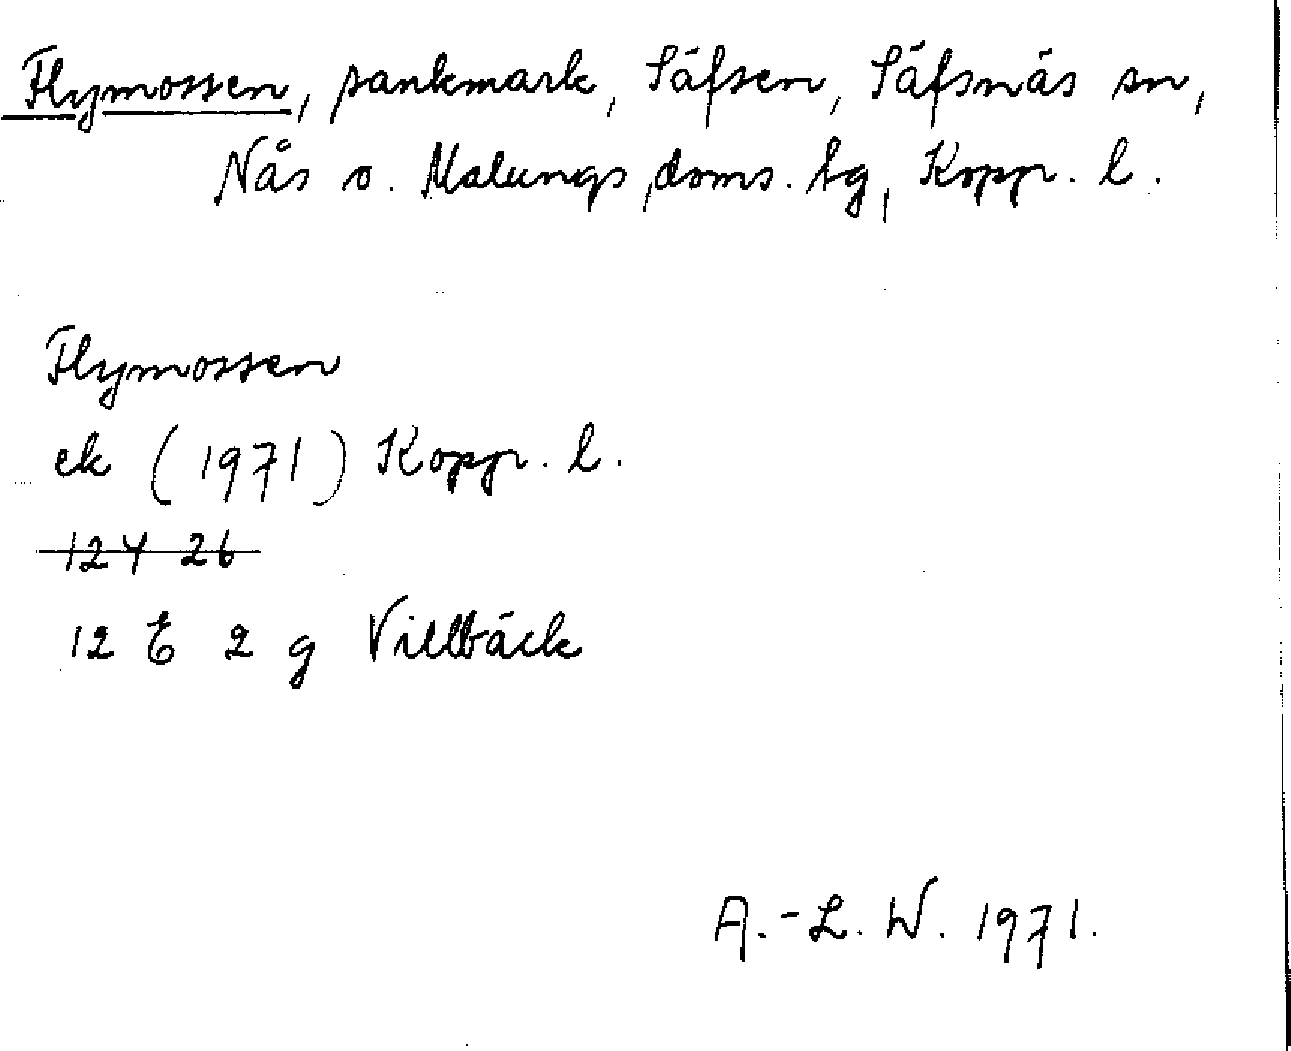 Flymossen, sankmark, Säfsen, Säfsnäs sn,
Nås o. Malungs doms. tg, Kopp. l.
Flymossen
ek (1971) Kopp. l.
124 26
12 E 2 g Villbäck
A.-L. W. 1971.